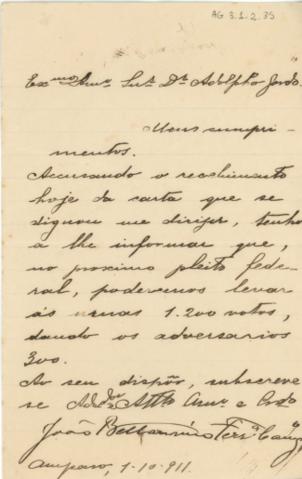 AG 3.1.2.35
Exmo Amo Snr. Dr. Adolpho Gordo.
Meus cumpri-
mentos.
Accusando o recebimento
hoje da carta que se
dignou me dirijer, tenho
a lhe informar que,
no proximo pleito fede-
ral, poderemos levar
ás urnas 1.200 votos,
dando os adversarios
300.
Ao seu dispôr, subscreve
se Atto Amo e Crdo
João Bellarmino
Amparo, 1-10-911.